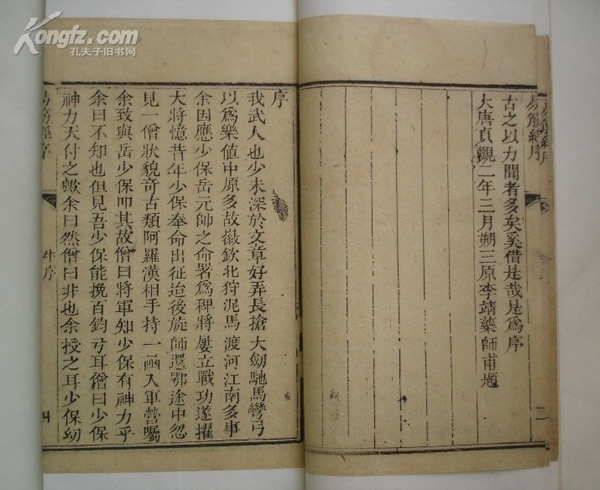 Kongfz.com
孔夫子旧书网
易筋經序
古之以力聞者多矣奚借是哉是爲序
大唐貞觀二年三月朔三原李靖藥師甫題
二
序
我武人也少未深於文章好弄長搶大劒馳馬彎弓
以爲樂値中原多故徽欽北狩泥馬渡河江南多事
余因應少保岳元帥之命署爲裨將屢立戰功遂擢
大將憶昔年少保奉命出征迨後旋師還鄂途中忽
見一僧狀貌奇古類阿羅漢相手持一函入軍營囑
余致與岳少保叩其故僧曰將軍知少保有神力乎
余曰不知也但見吾少保能挽百鈞弓耳僧曰少保
神力天付之歟余曰然僧曰非也余授之耳少保幼
易筋經序
牛序
四